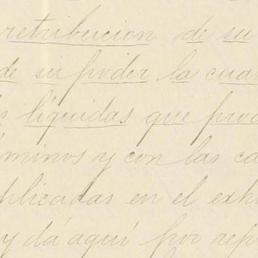 retribucion de su
de su poder la cua
s líquidas que prod
minos y con las ca
plicadas en el exh
y dá aquí por rep